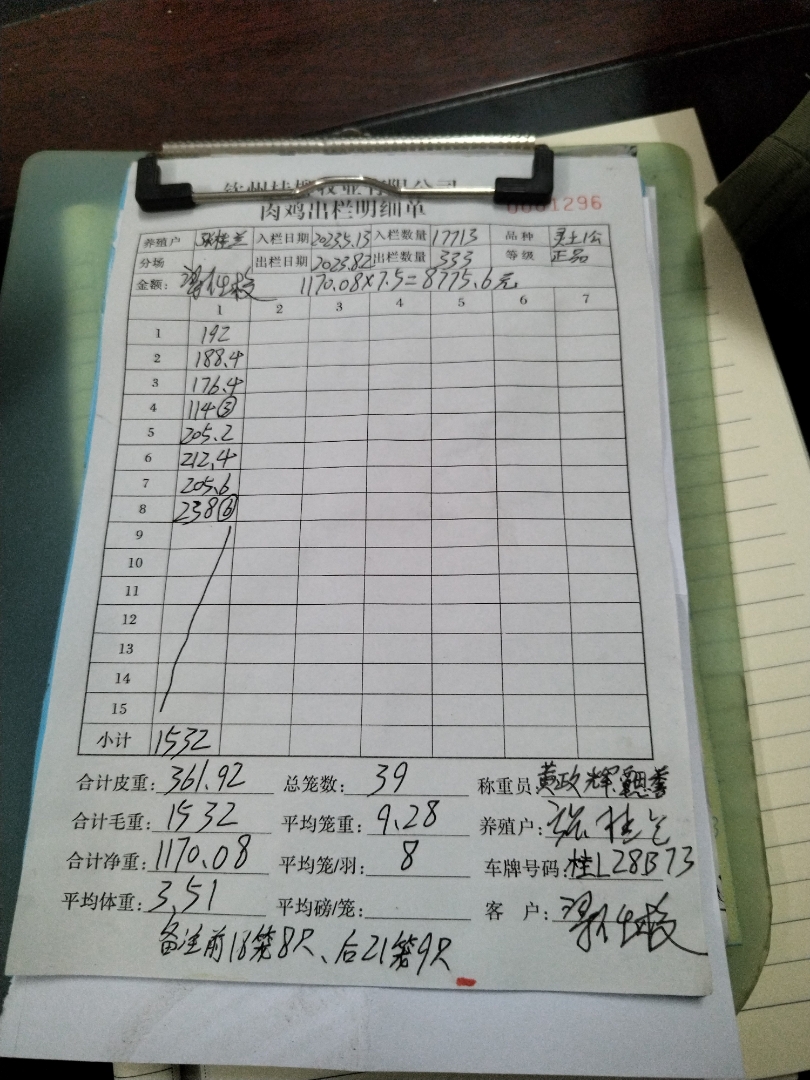 肉鸡出栏明细单
0001296
养殖户 张桂兰 入栏日期 2023.5.13 入栏数量 17713 品种 灵土1公
分场 出栏日期 2023.8.2 出栏数量 333 等级 正品
金额: 1170.08×7.5=8775.6元
1 2 3 4 5 6 7
1 192
2 188.4
3 176.4
4 114③
5 205.2
6 212.4
7 205.6
8 238⑥
9
10
11
12
13
14
15
小计 1532
合计皮重: 361.92 总笼数: 39 称重员: 黄政辉
合计毛重: 1532 平均笼重: 9.28 养殖户: 张桂兰
合计净重: 1170.08 平均笼/羽: 8 车牌号码: 桂L28B73
平均体重: 3.51 平均磅/笼: 客户:
备注前18笼8只、后21笼9只